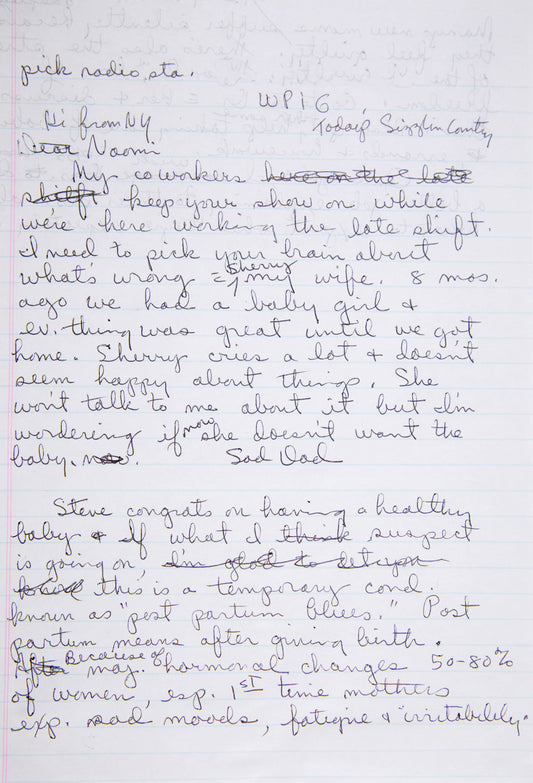 pick radio sta.
WPIG,
Hi from NY
Today's Sizzlin Country
Dear Naomi
My coworkers here on the late
shift keep your show on while
we're here working the late shift.
I need to pick your brain about
what's wrong = my Sherry wife. 8 mos.
ago we had a baby girl &
ev. thing was great until we got
home. Sherry cries a lot & doesn't
seem happy about things. She
won't talk to me about it but I'm
wondering if now she doesn't want the
baby. now. Sad Dad
Steve congrats on having a healthy
baby & If what I think suspect
is going on, I'm glad to let you
know this is a temporary cond.
known as "post partum blues." Post
partum means after giving birth.
After Because of maj. hormonal changes 50-80%
of women, esp. 1st time mothers
exp. sad moods, fatigue & "irritability."